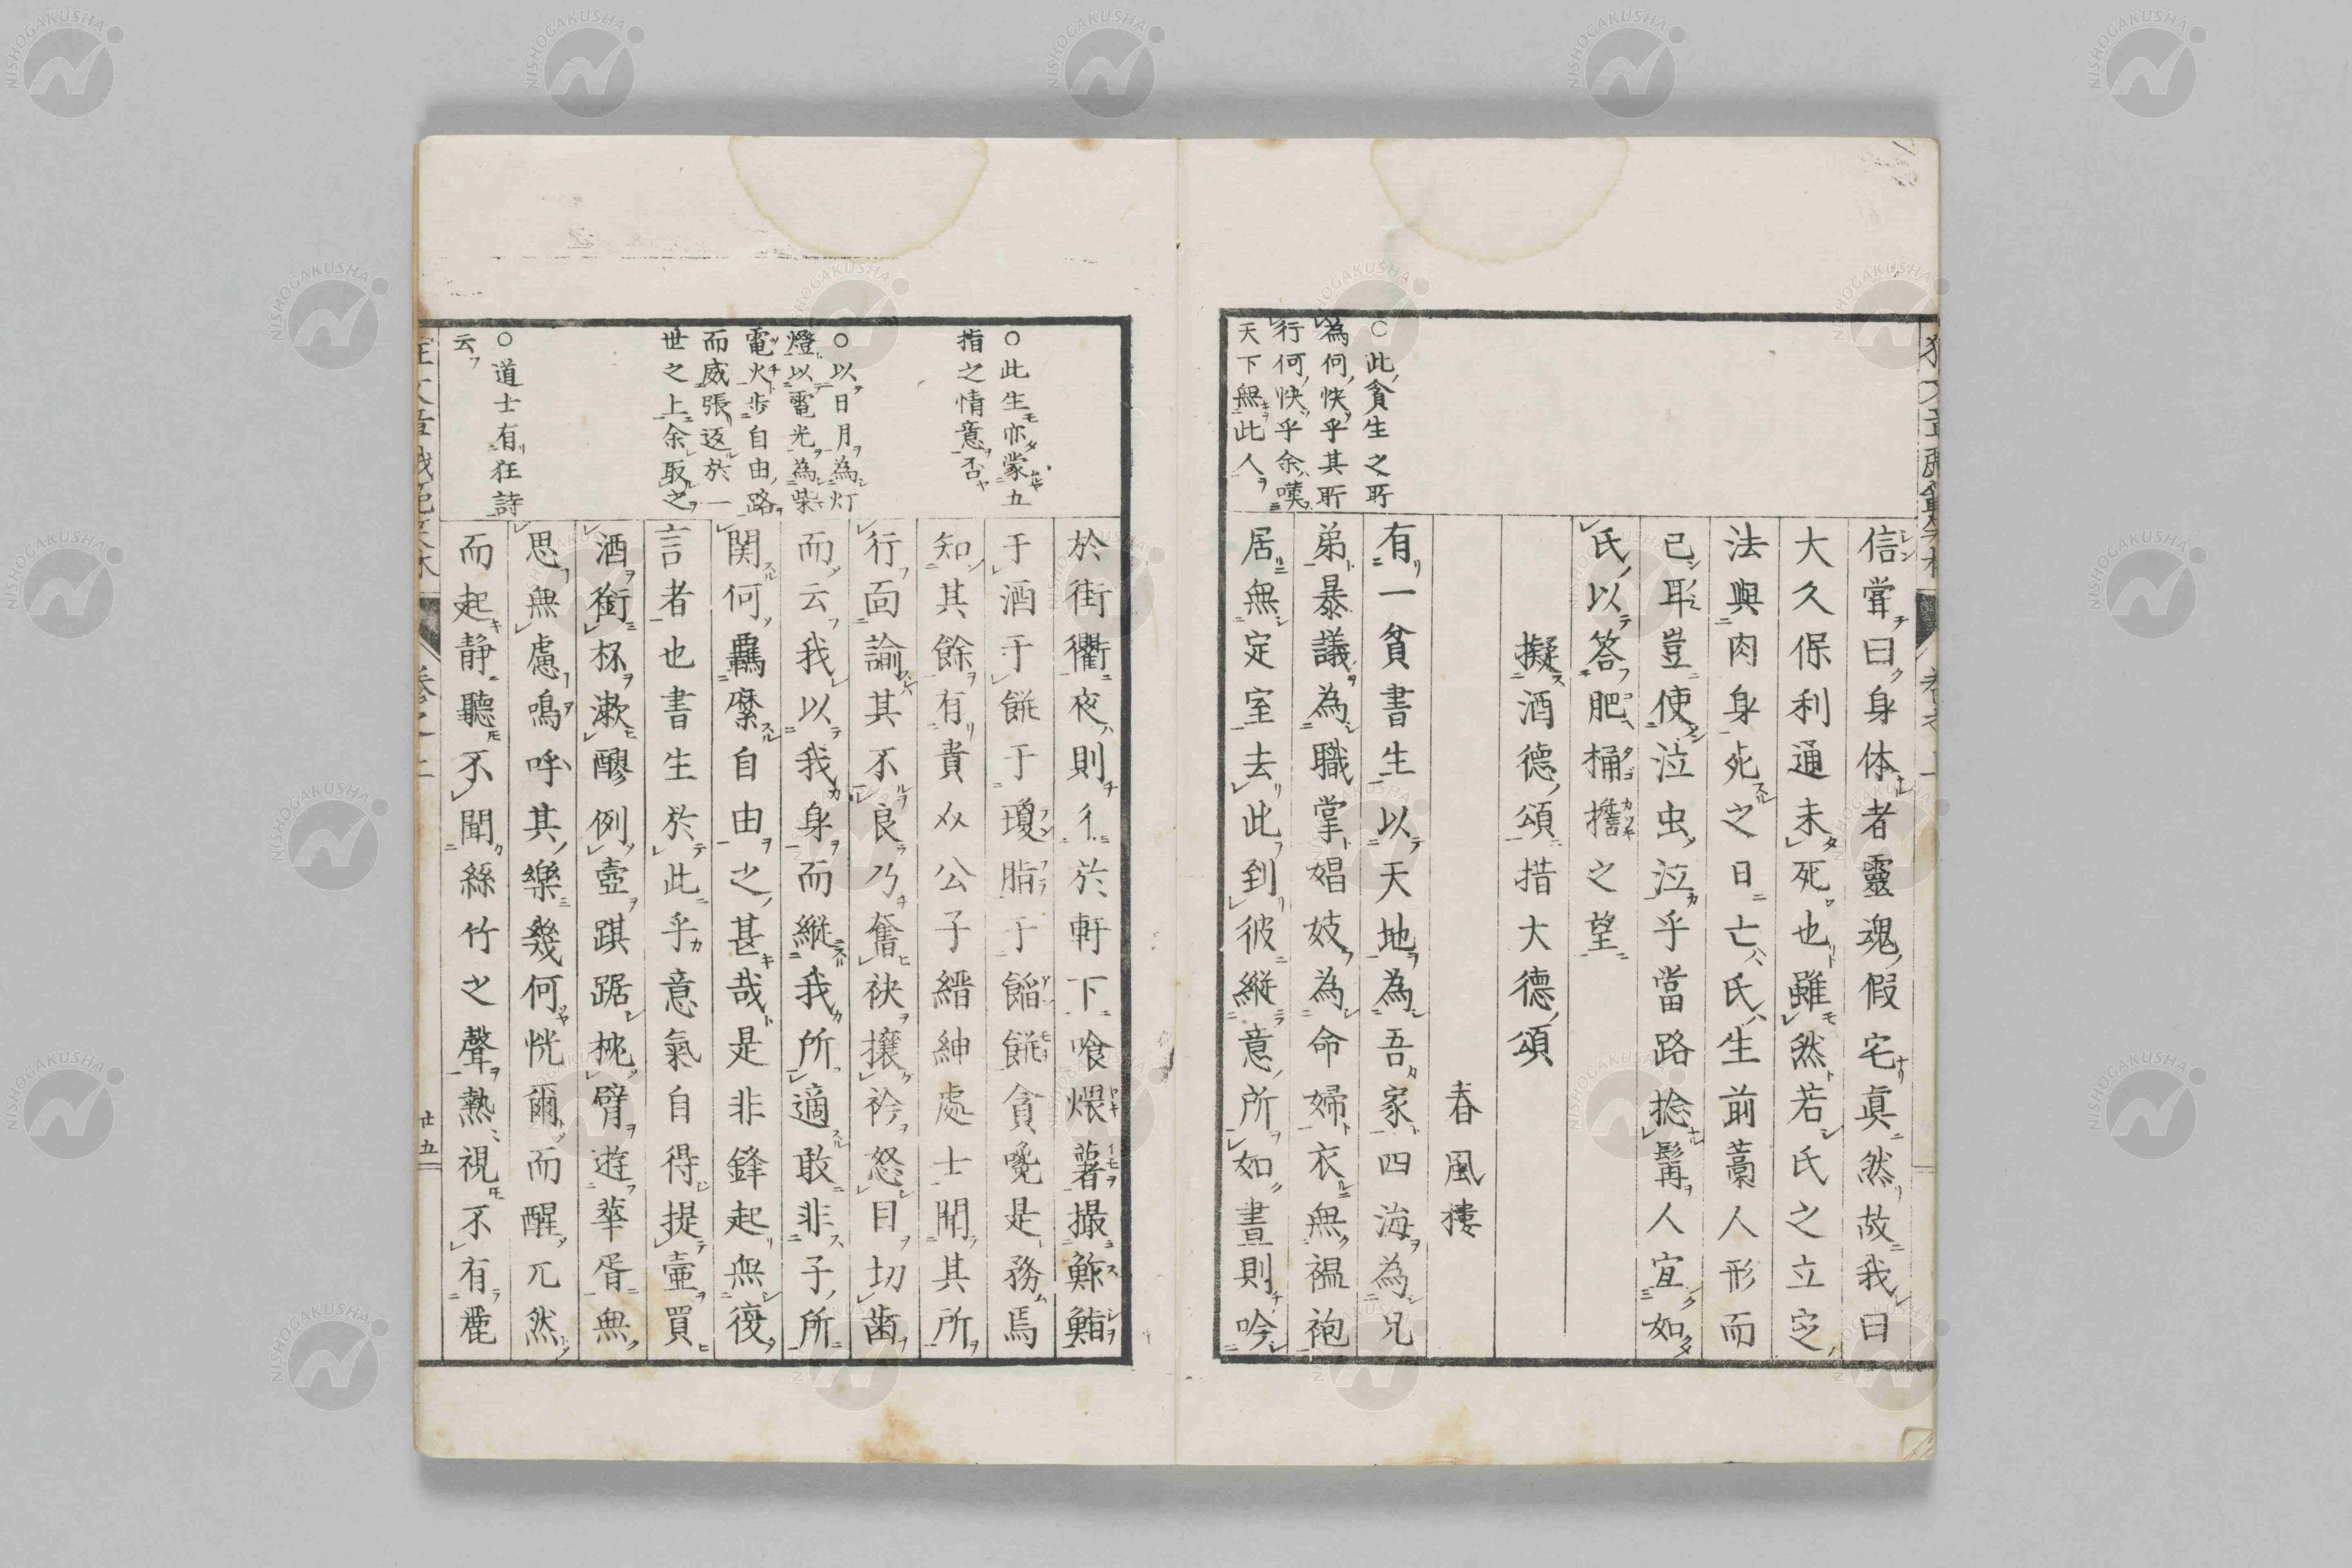 信嘗曰身体者靈魂假宅眞然故我曰
大久保利通未死也雖然若氏之立定
法與肉身死之日亡氏生前藁人形而
已耳豈使泣虫泣乎當路捻髯人宜如
氏以答肥桶擔之望
擬酒德頌措大德頌
春風樓
○此貧生之所
為何快乎其所
行何快乎余嘆
天下無此人
有一貧書生以天地為吾家四海為兄
弟暴議為職掌娼妓為命婦衣無褞袍
居無定室去此到彼縱意所如晝則吟
於街衢夜則彳於軒下喰煨薯撮鮓鮨
于酒于餅于瓊脂于餡餅貪喫是務焉
知其餘有貴㕛公子縉紳處士聞其所
行面諭其不良乃奮袂攘衿怒目切齒
而云我以我身而縱我所適敢非子所
関何羈縻自由之甚哉是非鋒起無復
言者也書生於此乎意氣自得提壷買
酒銜杯漱醪例壺踑踞枕臂遊華胥無
思無慮嗚呼其樂幾何恍爾而醒兀然
而起静聽不聞絲竹之聲熟視不有麗
○此生亦蒙五
指之情意否
○以日月為灯
燈以電光為柴
電火歩自由路
而威張返於一
世之上余取之
○道士有狂詩
云
廿五
NISHOGAKUSHA